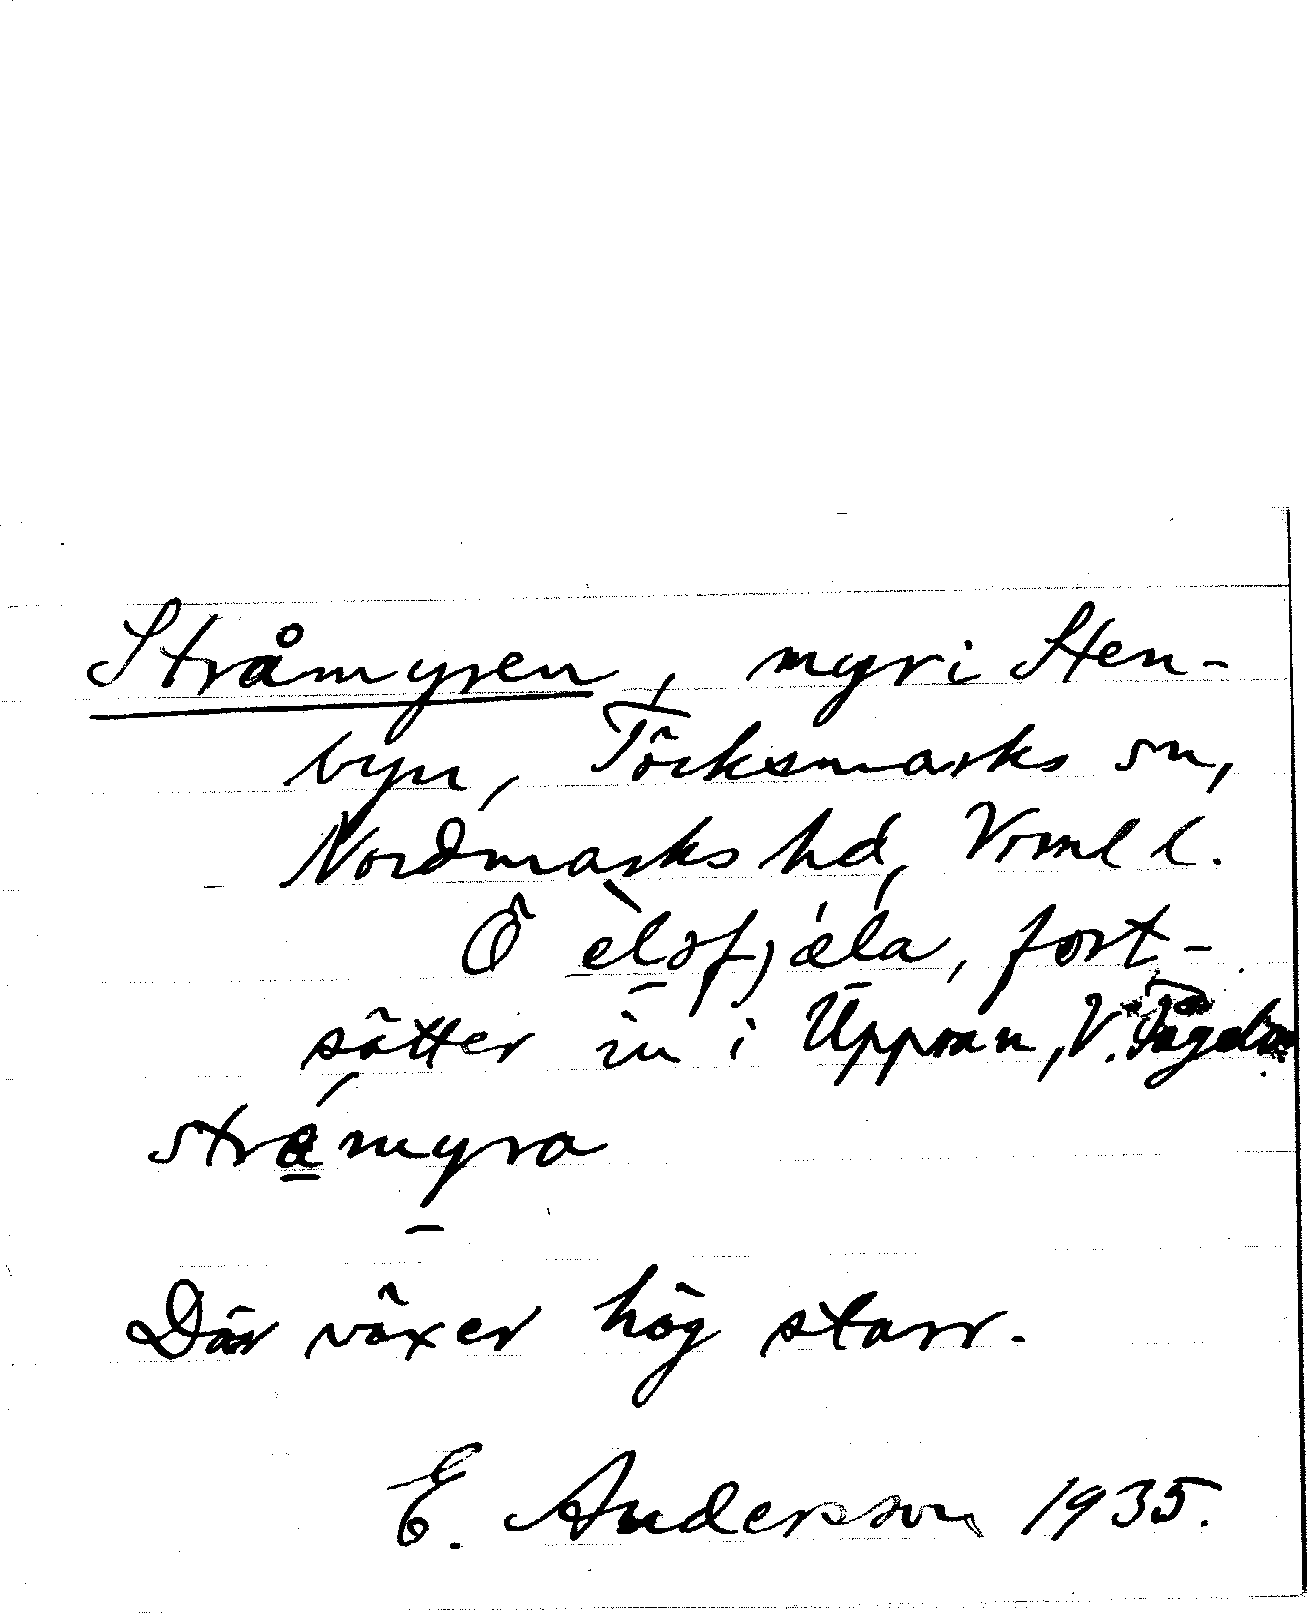 Stråmyren, myr i Sten-
byn, Töcksmarks sn,
Nordmarks hd, Vrml l.
Ö elofjæla, fort-
sätter in i Uppman, V.
stramyra
Där växer hög starr.
E. Anderson 1935.